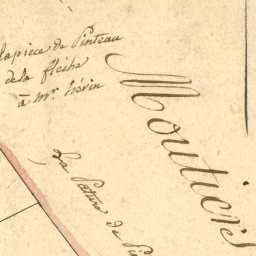 la piece de Pinteau
de la fléche
à mr. hérin
Moutiers
La Pature de Pin